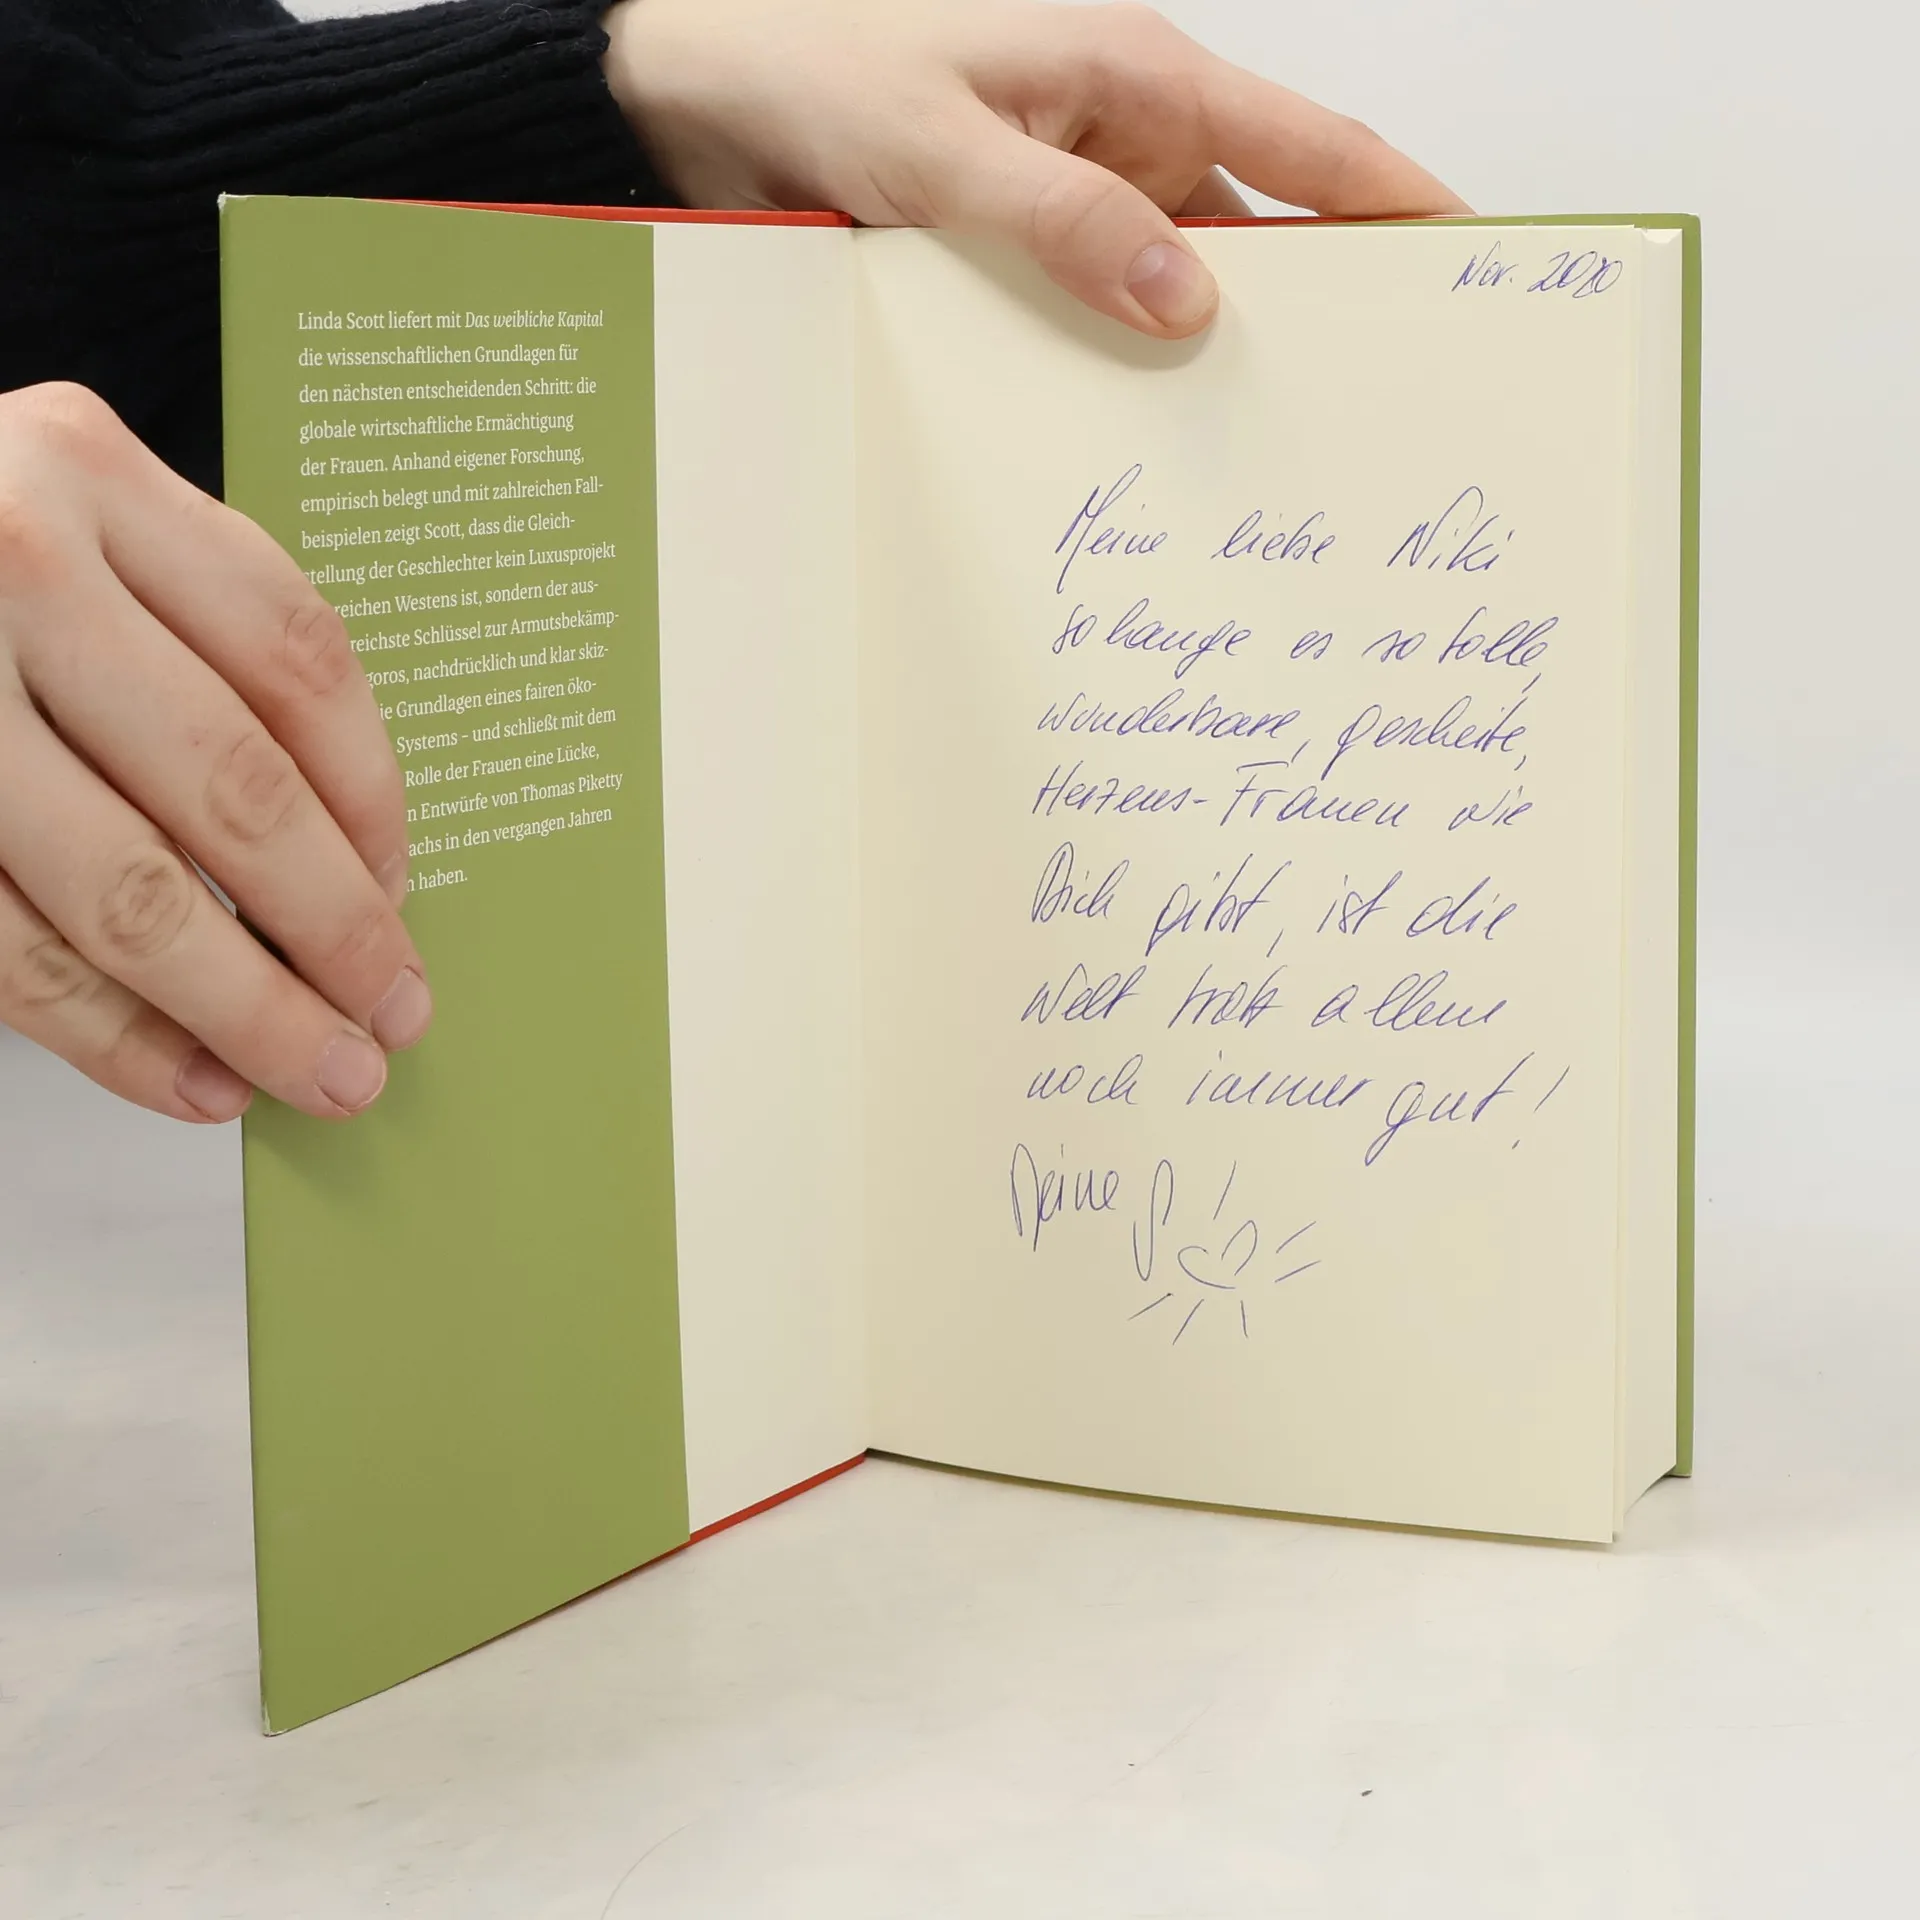 Linda Scott liefert mit Das weibliche Kapital
die wissenschaftlichen Grundlagen für
den nächsten entscheidenden Schritt: die
globale wirtschaftliche Ermächtigung
der Frauen. Anhand eigener Forschung,
empirisch belegt und mit zahlreichen Fall-
beispielen zeigt Scott, dass die Gleich-
stellung der Geschlechter kein Luxusprojekt
reichen Westens ist, sondern der aus-
reichste Schlüssel zur Armutsbekämp-
goros, nachdrücklich und klar skiz-
ie Grundlagen eines fairen öko-
Systems – und schließt mit dem
Rolle der Frauen eine Lücke,
n Entwürfe von Thomas Piketty
achs in den vergangen Jahren
n haben.
Nov. 2020
Meine liebe Niki
so lange es so tolle,
wunderbare, gescheite,
Herzens-Frauen wie
Dich gibt, ist die
Welt trotz allem
noch immer gut!
Deine